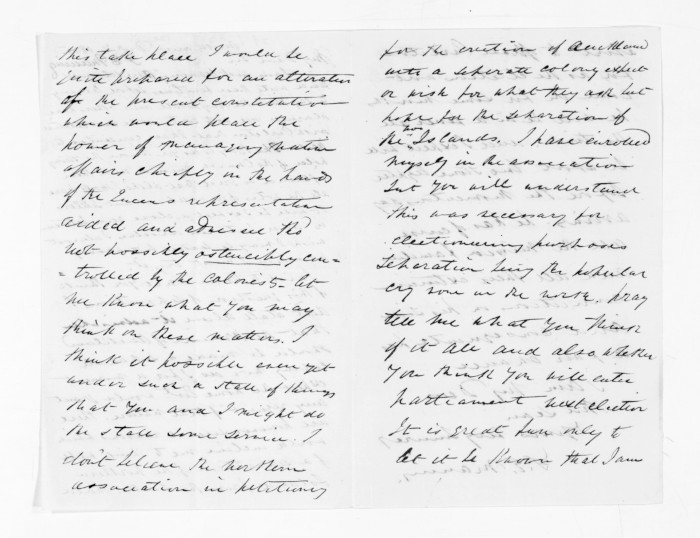 this take place I would be
quite prepared for an alteration
of the present constitution
which would place the
power of managing native
affairs chiefly in the hands
of the Queens representative
aided and advised tho'
not possibly ostensibly con-
-trolled by the Colonies - let
me know what you may
think on these matters. I
think it possible even yet
under such a state of things
that you and I might do
the state some service. I
don't believe the northern
association in petitioning
for the erection of Auckland
into a seperate colony expect
or wish for what they ask but
hope for the separation of
the two Islands. I have enrolled
myself in the association
but you will understand
this was necessary for
electioneering purposes
Seperation being the popular
cry now in the north. pray
tell me what you think
of it all and also whether
you think you will enter
parliament next election
It is great fun only to
let it be known that I am